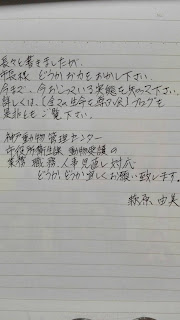 長々と書きましたが、
市長様 どうか お力を おかし下さい。
今まで、今おこっている実態を知って下さい。
詳しくは、【全ての生命を尊き尽く】ブログを
是非とも ご覧下さい。
神戸動物管理センター
市役所衛生課 動物愛護の
業務 職務、人事見直し対応
どうか、どうか宜しくお願い致します。
萩原 由美